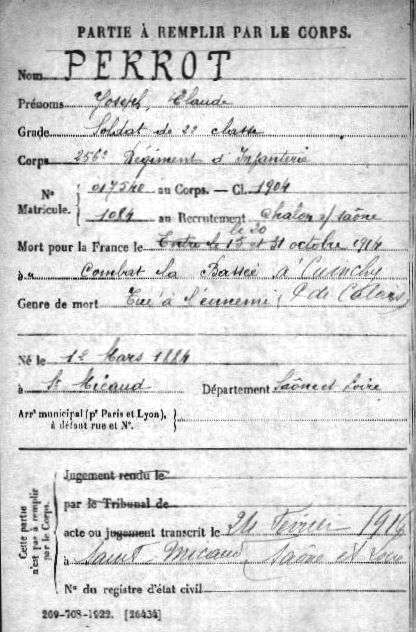 PARTIE À REMPLIR PAR LE CORPS.
Nom PERROT
Prénoms Joseph, Claude
Grade Soldat de 2e classe
Corps 256e Régiment d'Infanterie
N° Matricule. 017540 au Corps. — Cl. 1904
1084 au Recrutement Chalon s/ Saône
le 30
Mort pour la France le Entre le 13 et 31 octobre 1914
à Combat La Bassée à Cuinchy
Genre de mort Tué à l'ennemi (P. de Calais)
Né le 12 Mars 1884
à St Micaud Département Saône et Loire
Arrt municipal (pr Paris et Lyon),
à défaut rue et N°.
Cette partie n'est pas à remplir par le Corps.
Jugement rendu le
par le Tribunal de
acte ou jugement transcrit le 24 Février 1916
à Saint-Micaud, Saône et Loire
N° du registre d'état civil
209-708-1922. [26434]